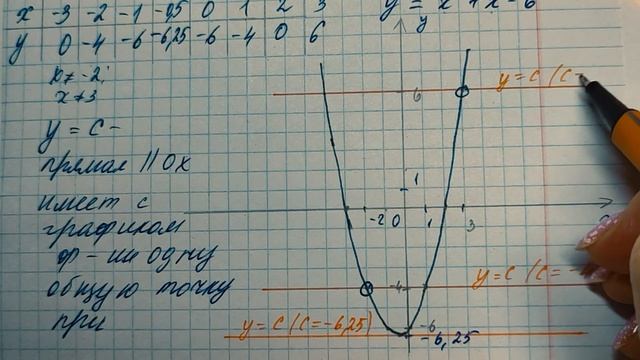 x -3 -2 -1 -0,5 0 1 2 3
y = x + x - 6
y 0 -4 -6 -6,25 -6 -4 0 6
x ≠ -2;
x ≠ 3
y = c -
прямая || OX
имеет с
графиком
ф-ии одну
общую точку
при
y
y = c (c =
6
1
-2 0 1 3
-4
y = c (c = -
y = c (c = -6,25)
-6
-6,25